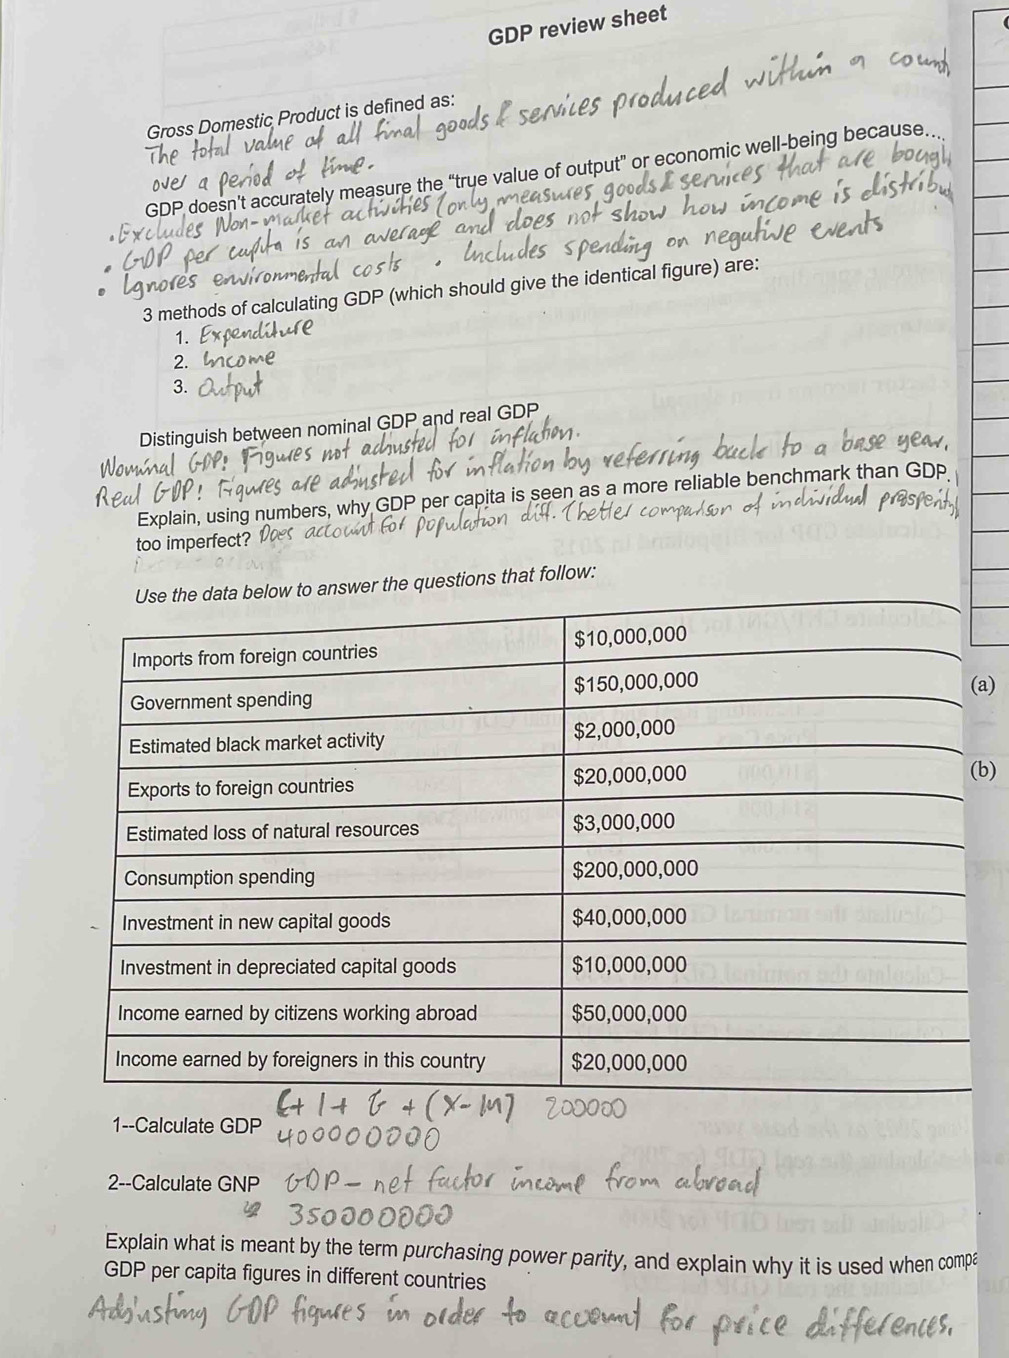 GDP review sheet
Gross Domestic Product is defined as:
The total value of all final goods & services produced within a count
over a period of time.
GDP doesn't accurately measure the “true value of output” or economic well-being because....
• Excludes Non-market activities (only measures goods & services that are bough
• GDP per capita is an average and does not show how income is distribu
• Ignores environmental costs • Includes spending on negative events
3 methods of calculating GDP (which should give the identical figure) are:
1. Expenditure
2. Income
3. Output
Distinguish between nominal GDP and real GDP
Nominal GDP: Figures not adjusted for inflation.
Real GDP: Figures are adjusted for inflation by referring back to a base year.
Explain, using numbers, why GDP per capita is seen as a more reliable benchmark than GDP.
too imperfect? Does account for population diff. (better comparison of individual prosperity)
Use the data below to answer the questions that follow:
Imports from foreign countries $10,000,000
Government spending $150,000,000
Estimated black market activity $2,000,000
Exports to foreign countries $20,000,000
Estimated loss of natural resources $3,000,000
Consumption spending $200,000,000
Investment in new capital goods $40,000,000
Investment in depreciated capital goods $10,000,000
Income earned by citizens working abroad $50,000,000
Income earned by foreigners in this country $20,000,000
(a)
(b)
C+ I + G + (X-M) 200000
1--Calculate GDP 400000000
2--Calculate GNP GDP - net factor income from abroad
350000000
Explain what is meant by the term purchasing power parity, and explain why it is used when compa
GDP per capita figures in different countries
Adjusting GDP figures in order to account for price differences.